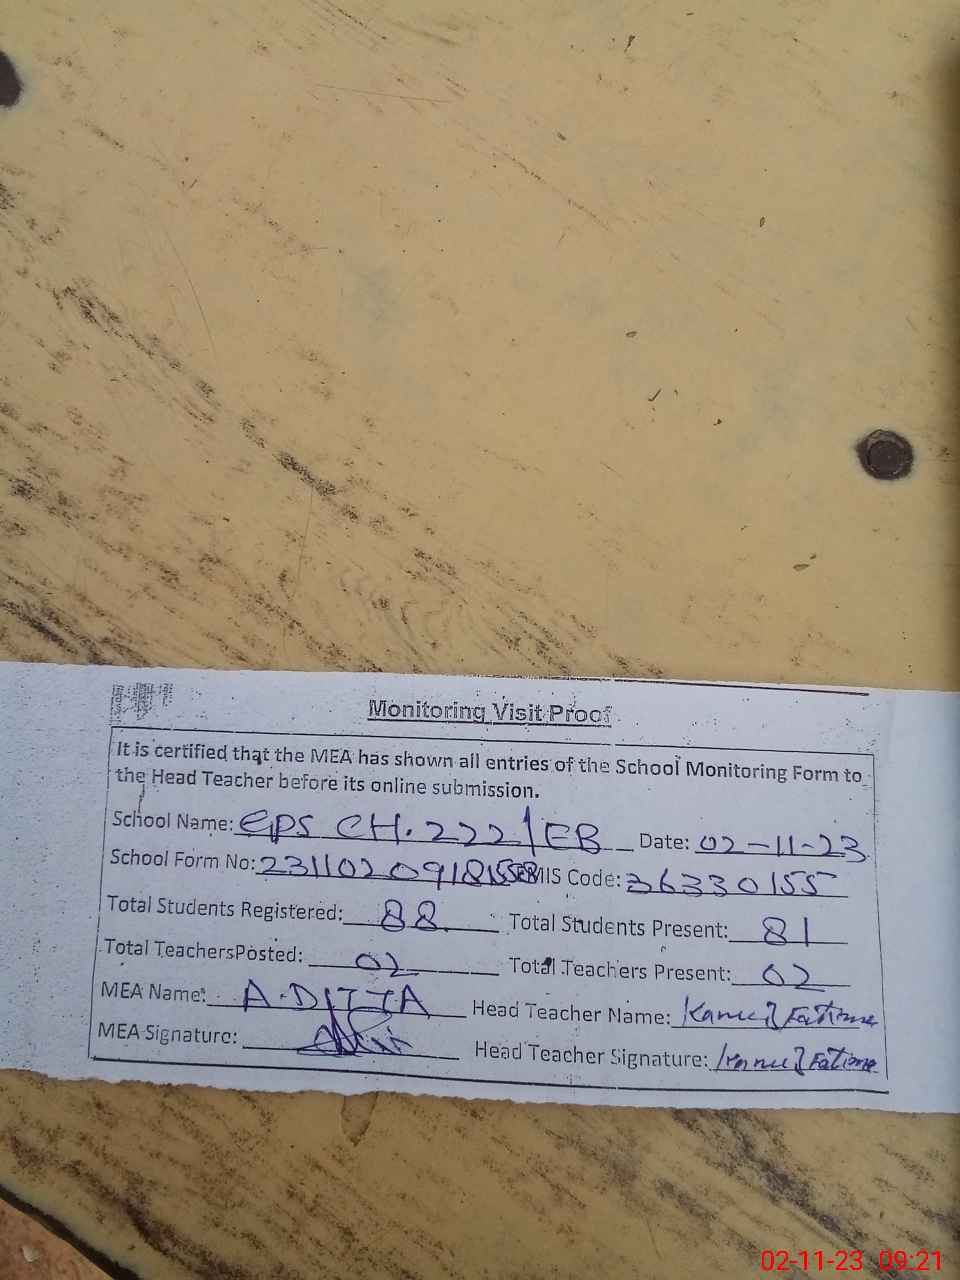 Monitoring Visit Proof
It is certified that the MEA has shown all entries of the School Monitoring Form to
the Head Teacher before its online submission.
School Name: GPS CH.222/EB Date: 02-11-23
School Form No: EMIS Code: 36330155
Total Students Registered: 88 Total Students Present: 81
Total TeachersPosted: 02 Total Teachers Present: 02
MEA Name: A.DITTA Head Teacher Name: Fatima
MEA Signature: Head Teacher Signature: Fatima
02-11-23 09:21